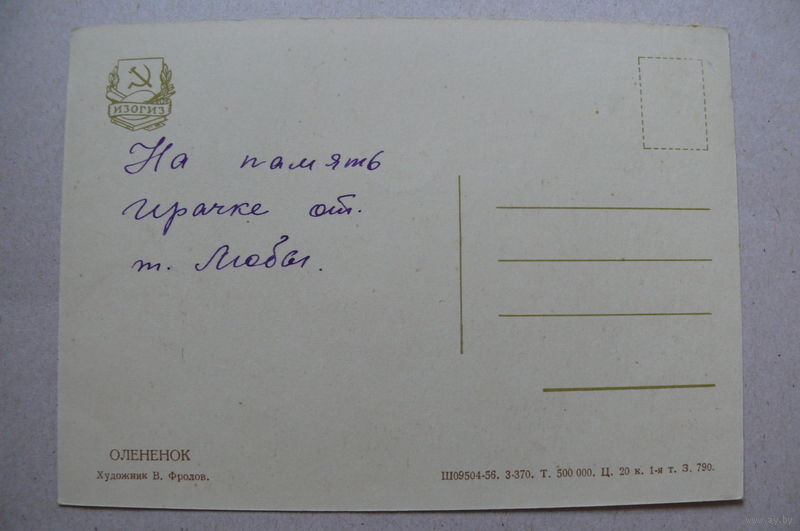 ИЗОГИЗ
На память
Ирачке от.
т. Любы.
ОЛЕНЕНОК
Художник В. Фролов.
Ш09504-56. 3-370. Т. 500 000. Ц. 20 к. 1-я т. З. 790.
www.ay.by